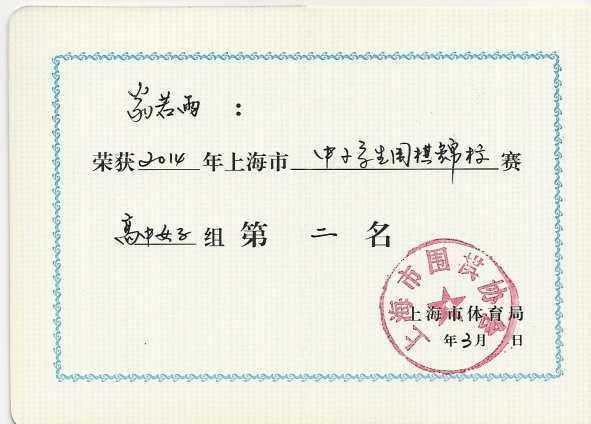 翁若雨：
荣获2014年上海市中小学生围棋锦标赛
高中女子组第二名
上海市围棋协会
上海市体育局
年3月 日